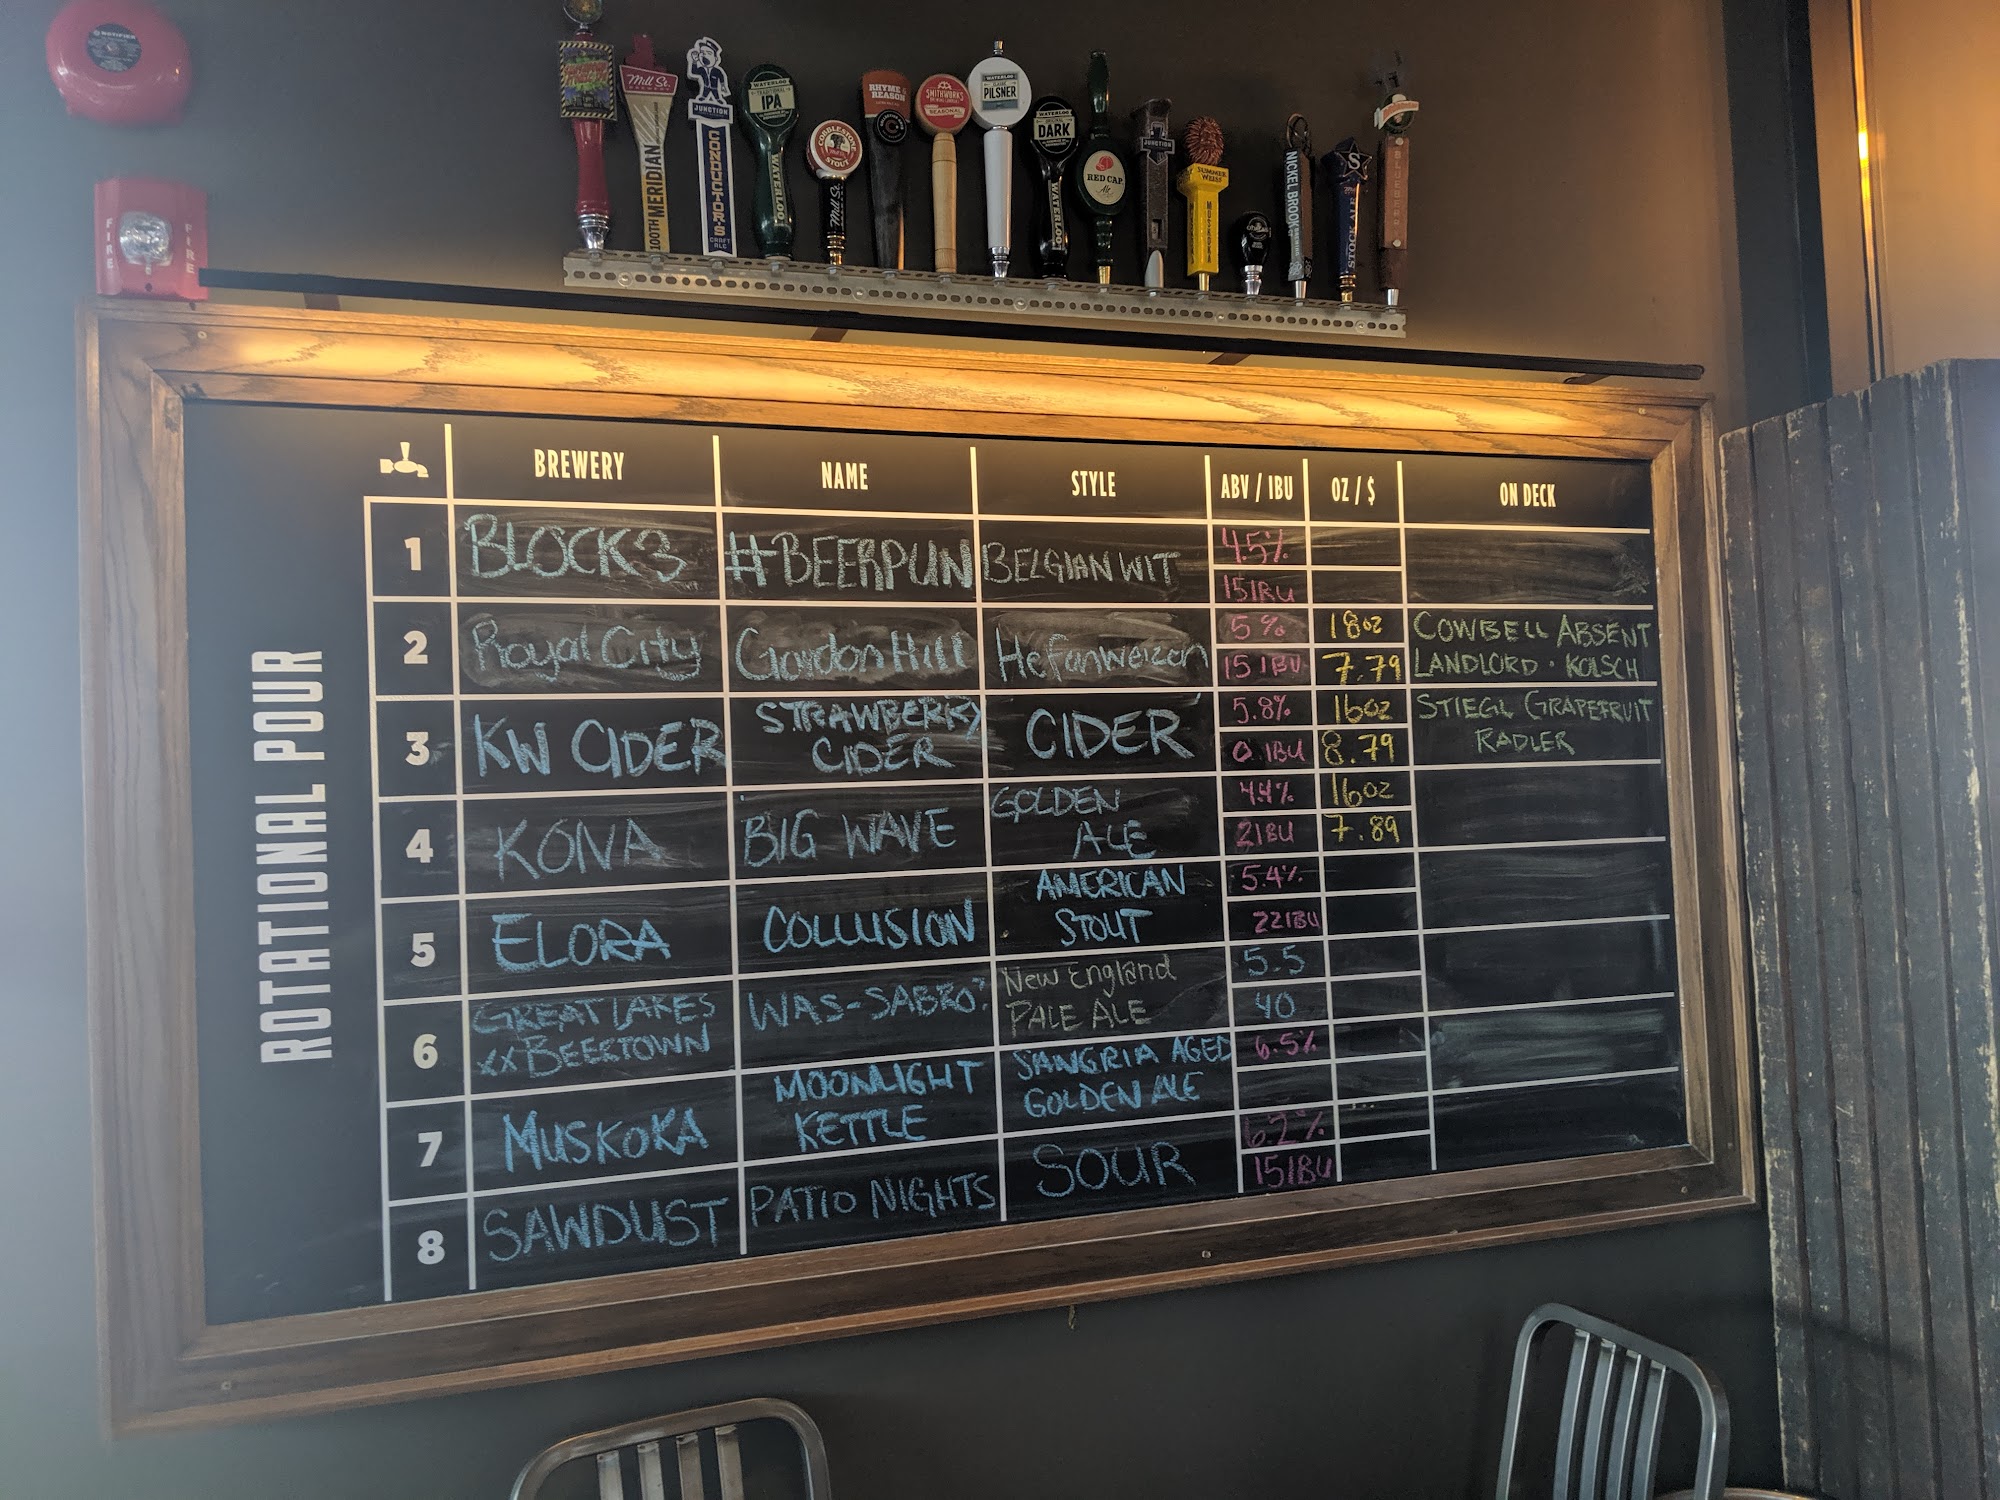 NOTIFIER
FIRE
FIRE
Mill St.
BREWERY
100TH MERIDIAN
JUNCTION
CONDUCTOR'S
CRAFT ALE
WATERLOO
TRADITIONAL
IPA
WATERLOO
COBBLESTONE
STOUT
Mill St.
RHYME &
REASON
SMITHWORKS
SEASONAL
WATERLOO
CLASSIC
PILSNER
WATERLOO
DARK
WATERLOO
RED CAP
Ale
JUNCTION
SUMMER
WEISS
MUSKOKA
NICKEL BROOK
S
STOCK ALE
BLUEBERRY
ROTATIONAL POUR
BREWERY NAME STYLE ABV / IBU OZ / $ ON DECK
1 BLOCK 3 #BEERPUN BELGIAN WIT 4.5%
15 IBU
2 Royal City Gordon Hill Hefanweizen 5% 18oz COWBELL ABSENT
15 IBU 7.79 LANDLORD · KOLSCH
3 KW CIDER STRAWBERRY CIDER 5.8% 16oz STIEGL GRAPEFRUIT
CIDER 0 IBU 8.79 RADLER
4 KONA BIG WAVE GOLDEN 4.4% 16oz
ALE 21BU 7.89
5 ELORA COLLUSION AMERICAN 5.4%
STOUT 22IBU
6 GREAT LAKES WAS-SABRO? New England 5.5
xx BEERTOWN PALE ALE 40
7 MUSKOKA MOONLIGHT SANGRIA AGED 6.5%
KETTLE GOLDEN ALE
8 SAWDUST PATIO NIGHTS SOUR 6.2%
15IBU